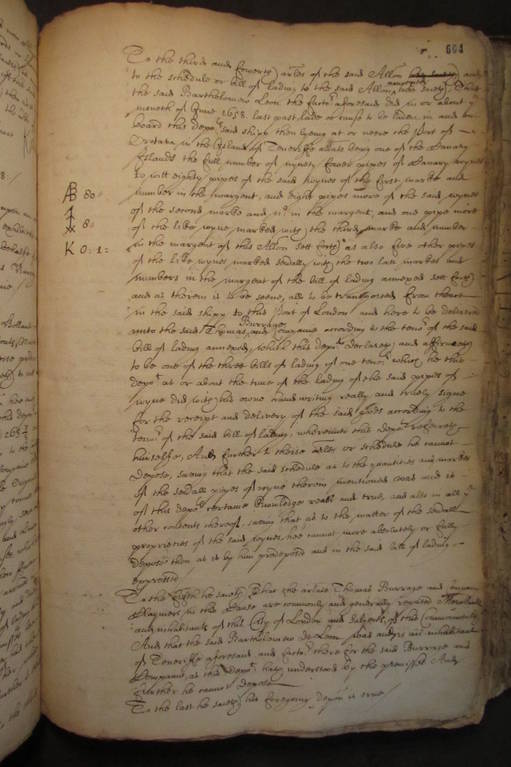 604
To the third and fowerth arles of the said Allon and
to the schedule or bill of lading to the said Allon annexed hee saith That
the said Bartholomew Leon the factor aforesaid did in or about ye
moneth of June 1658. last past lade or cause to be laden in and on
board this depots said shipp then lyeing at or neere the Port of
in the Island of Teneriffe allate being one of the Canary
Islands the full number of ninety fower pipes of Canary wynes
to wit eighty pipes of the said wynes of the first marke and
number in the margent, and eight pipes more of the said wynes
of the second marke and no in the margent, and one pipe more
of the like wyne marked with the third marke and number
in the margent of this Allon sett forth as also five other pipes
of the like wynes marked severally with the two last markes and
numbers in the margent of the bill of lading annexed sett forth
and as therein is to be seene, all to be transported from thence
in the said shipp to this Port of London and here to be delivered
Burrage
unto the said Thomas and Companie according to the tenor of the said
bill of lading annexed, which this depot declareth and affirmeth
to be one of the three bills of lading of one tenor which hee this
depot at or about the time of the lading of the said pipes of
wyne did with his owne hand writing really and truely signe
for the receipt and delivery of the said goods according to the
tenor of the said bill of lading, whereunto this depot referreth
himselfe, And further to theise arles or schedule he cannot
depose, saving that the said schedule as to the quantities and markes
of the severall pipes of wyne therein mentioned was and is
of this depots certaine knowledge reall and true, and also in all ye
other contents thereof, saving that as to the matter of the severall
proprieties of the said wynes, hee cannot more absolutely or fully
depose then as is by him predeposed and in the said bill of lading
expressed
To the fifth he saith That the arlate Thomas Burrage and Companie
Claymers in this Cause are commonly and generally reputed Merchants
and inhabitants of this City of London and Subjects of this Commonwealth
And that the said Bartholomew de Leon was and is an inhabitant
of Teneriffe aforesaid and factor there for the said Burrage and
Companie, as this depot hath understood by the premisses And
further he cannot depose
To the last he saith his foregoing depon is true
80
8
K 0: 1